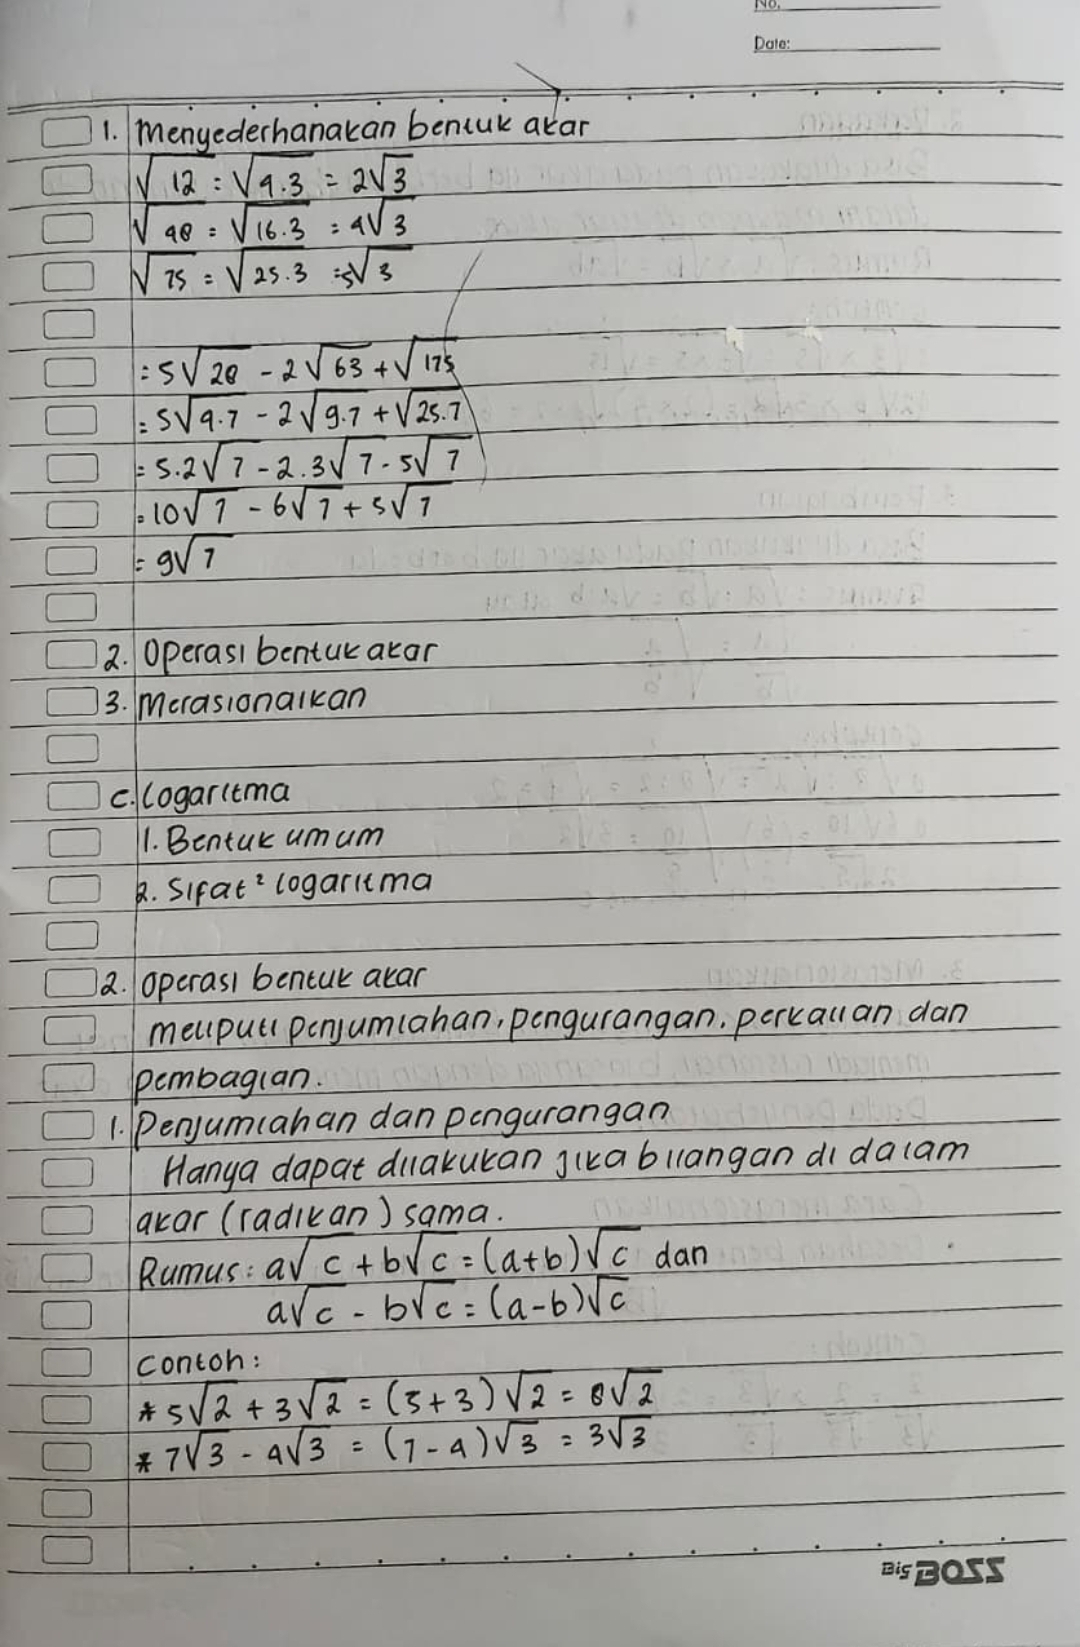 No.
Date:
1. Menyederhanakan bentuk akar
√12 = √4.3 = 2√3
√48 = √16.3 = 4√3
√75 = √25.3 = 5√3
= 5√28 - 2√63 + √175
= 5√4.7 - 2√9.7 + √25.7
= 5.2√7 - 2.3√7 - 5√7
= 10√7 - 6√7 + 5√7
= 9√7
2. Operasi bentuk akar
3. Merasionalkan
C. Logaritma
1. Bentuk umum
2. Sifat² logaritma
2. Operasi bentuk akar
meliputi penjumlahan, pengurangan, perkalian dan
pembagian.
1. Penjumlahan dan pengurangan
Hanya dapat dilakukan jika bilangan di dalam
akar (radikan) sama.
Rumus: a√c + b√c = (a+b)√c dan
a√c - b√c = (a-b)√c
Contoh:
* 5√2 + 3√2 = (5+3)√2 = 8√2
* 7√3 - 4√3 = (7-4)√3 = 3√3
Big BOSS